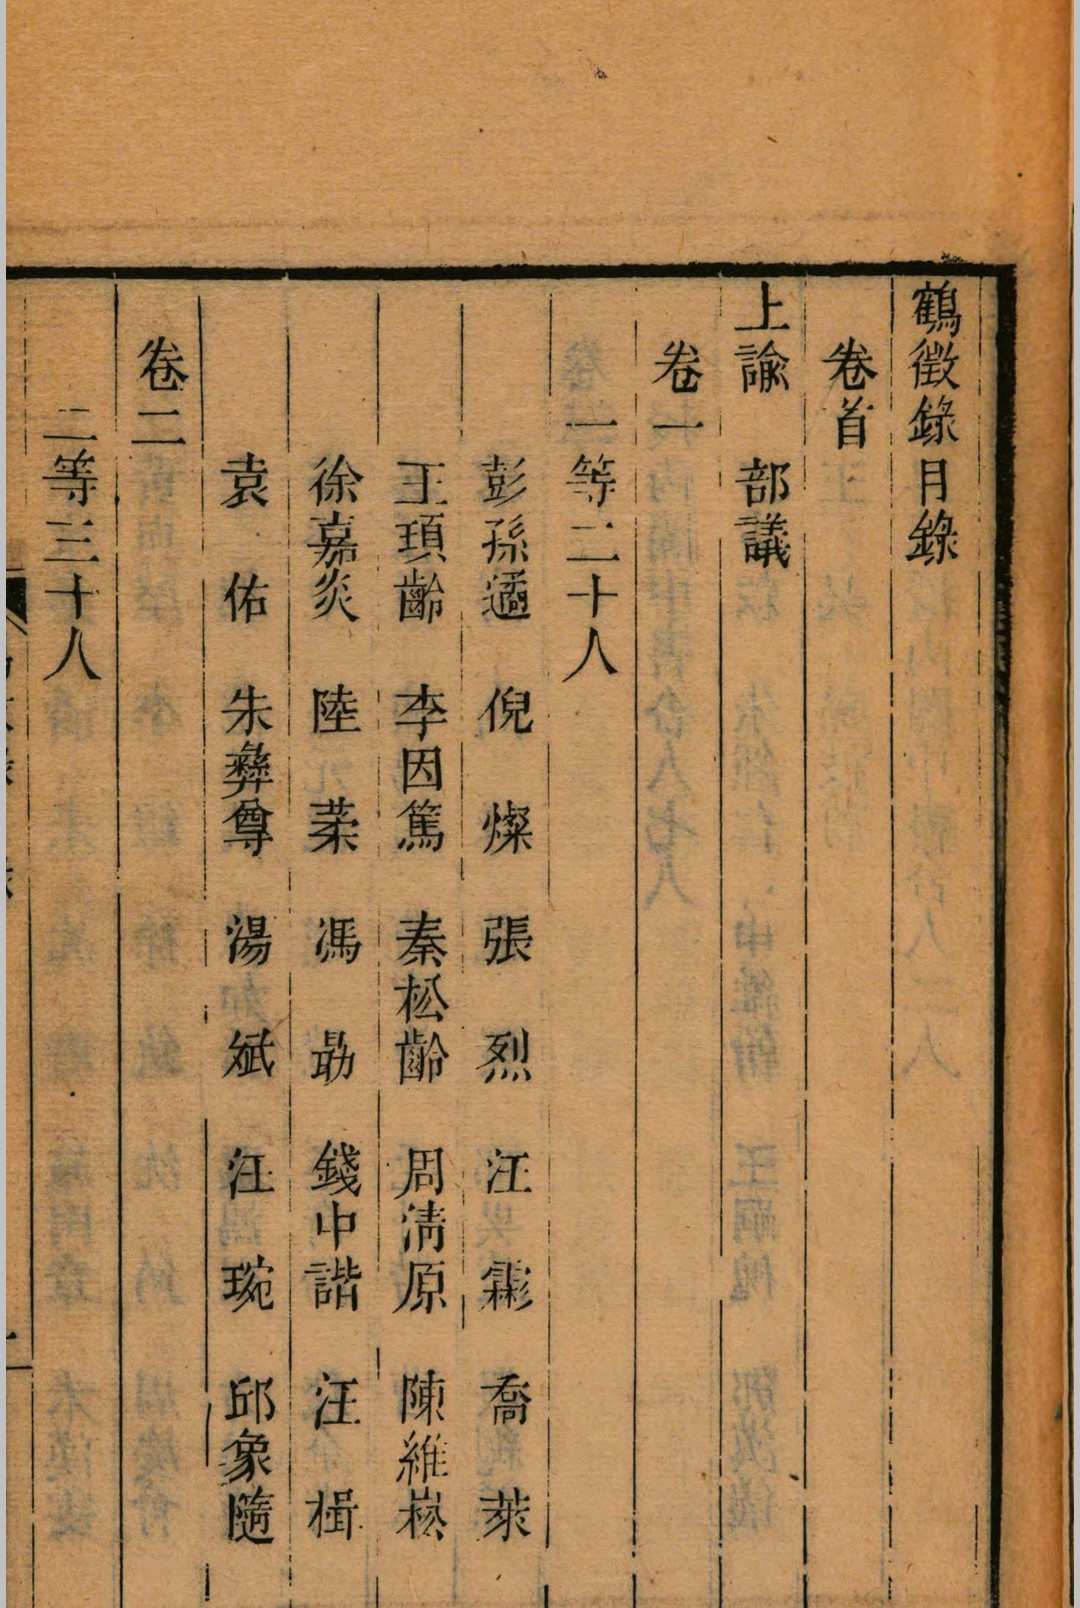 鶴徵錄目錄
卷首
上諭 部議
卷一
一等二十人
彭孫遹 倪燦 張烈 汪霦 喬萊
王頊齡 李因篤 秦松齡 周清原 陳維崧
徐嘉炎 陸葇 馮勗 錢中諧 汪楫
袁佑 朱彝尊 湯斌 汪琬 邱象隨
卷二
二等三十人